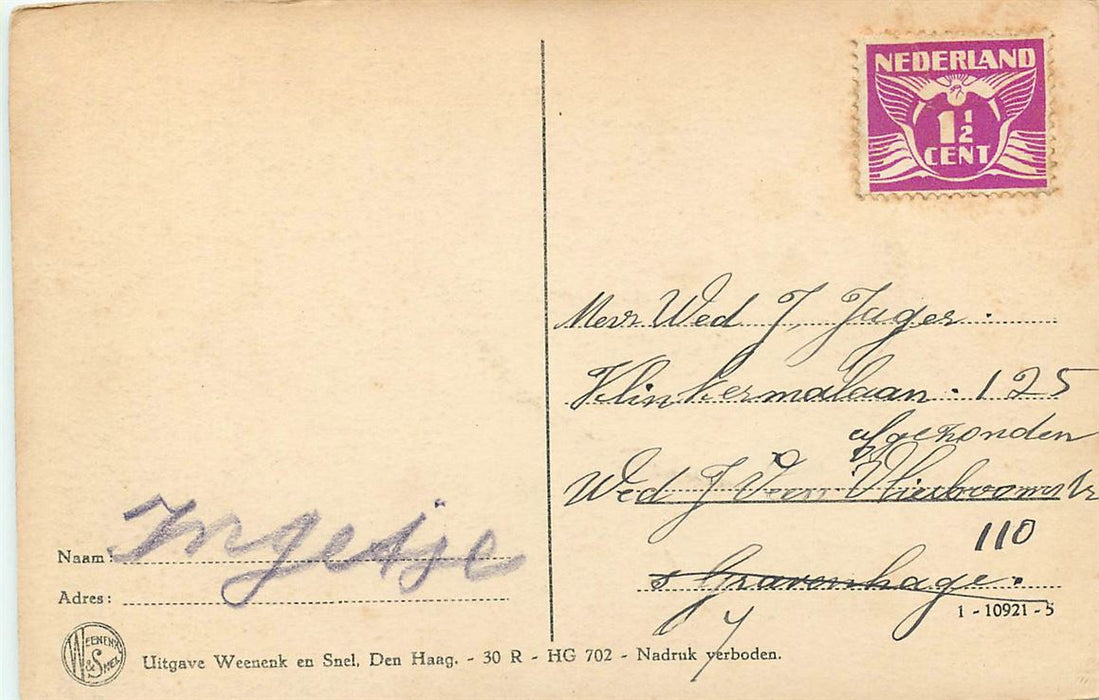 NEDERLAND
1 1/2
CENT
Mevr Wed J Jager.
Klinkermalaan. 125
afgezonden
Wed J Veen Vlierboomstr
110
s Gravenhage.
1 - 10921 - 5
Naam: Ingetje
Adres:
WEENENK & SNEL
Uitgave Weenenk en Snel, Den Haag. - 30 R - HG 702 - Nadruk verboden.